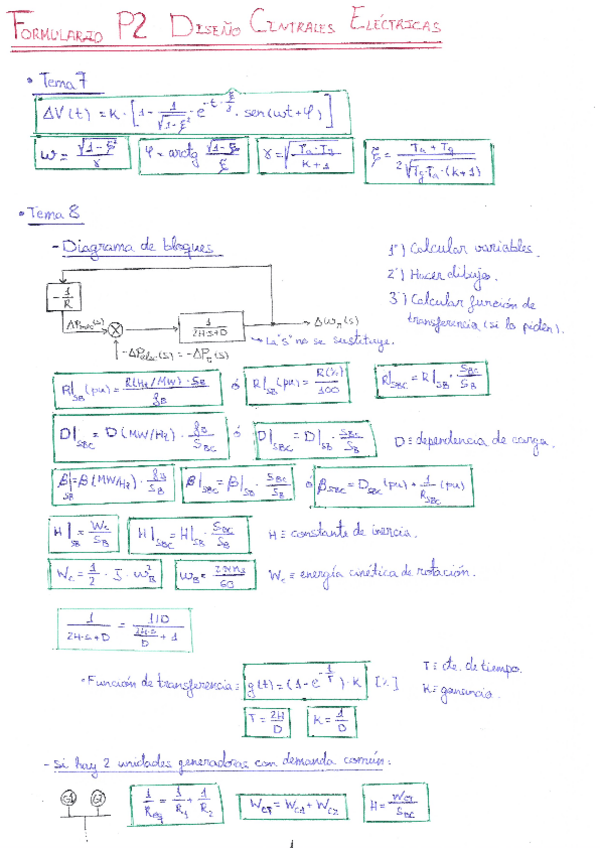 FORMULARIO P2 DISEÑO CENTRALES ELÉCTRICAS
• Tema 7
ΔV(t) = K · [1 - 1/√(1-ξ²) · e^(-t·ξ/γ) · sen(ωt+φ)]
ω = √(1-ξ²)/γ   φ = arctg √(1-ξ²)/ξ   γ = √(Ta·Tg/(K+1))   ξ = (Ta + Tg)/(2√(Tg·Ta·(K+1)))
• Tema 8
- Diagrama de bloques
1º) Calcular variables.
2º) Hacer dibujo.
3º) Calcular función de
transferencia (si la piden).
-1/R
ΔPmec(s)   1/(2H·s+D)   → Δωr(s)
-ΔPelec(s) = -ΔPL(s)
↳ La "s" no se sustituye.
R|SB (pu) = R(Hz/MW) · SB / fB   ó   R|SB (pu) = R(%)/100   R|SBC = R|SB · SBC/SB
D|SBC = D (MW/Hz) · fB/SBC   ó   D|SBC = D|SB · SBC/SB   D ≡ dependencia de carga.
β|SB = β (MW/Hz) · fB/SB   β|SBC = β|SB · SBC/SB   ó   βSBC = DSBC (pu) + 1/RSBC (pu)
H|SB = Wc/SB   H|SBC = H|SB · SBC/SB   H ≡ constante de inercia.
Wc = 1/2 · J · ωB²   ωB = 2πns/60   Wc ≡ energía cinética de rotación.
1/(2H·s+D) = (1/D)/(2H·s/D + 1)
• Función de transferencia ≡ g(t) = (1 - e^(-1/T)) · K [%]
T ≡ cte. de tiempo.
K ≡ ganancia.
T = 2H/D   K = 1/D
- Si hay 2 unidades generadoras con demanda común:
G1 G2   1/Req = 1/R1 + 1/R2   WCT = WC1 + WC2   H = WCT/SBC
1